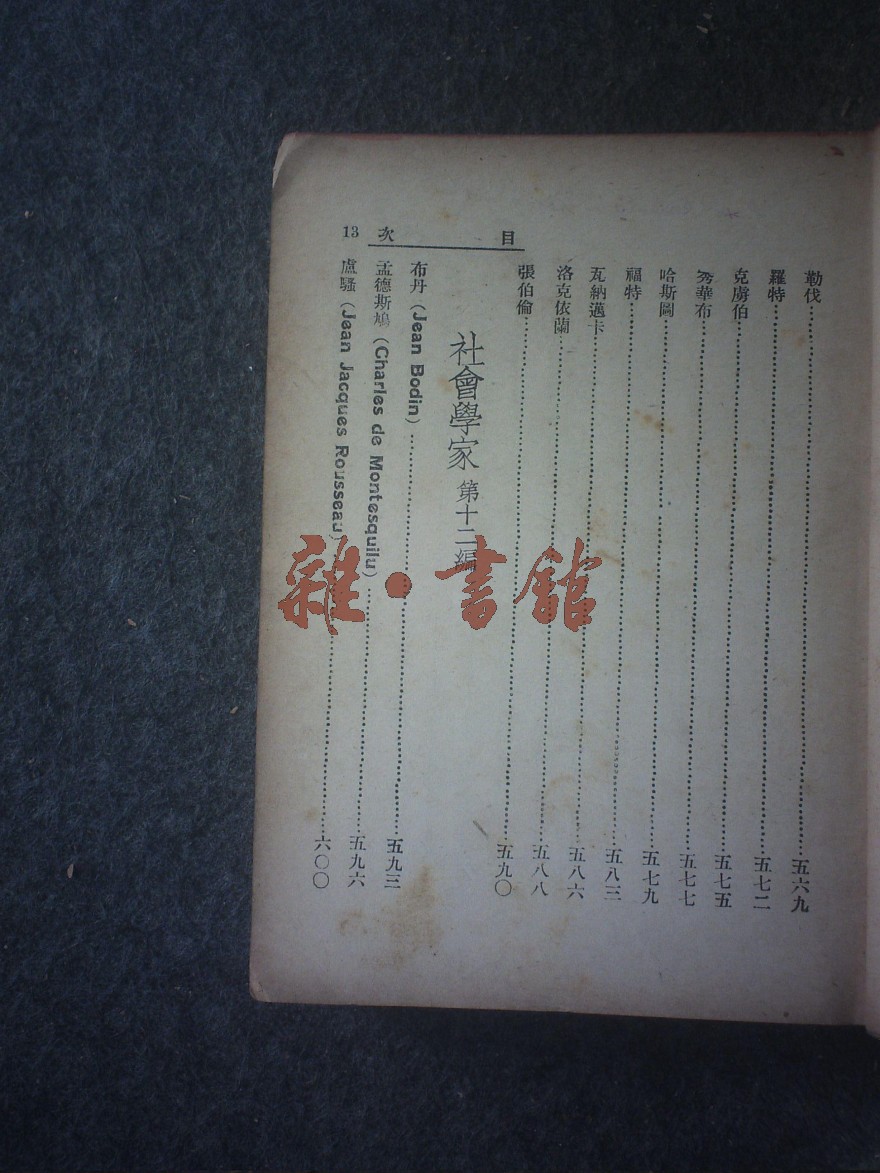 目次 13
勒伐……五六九
羅特……五七二
克虜伯……五七五
秀華布……五七七
哈斯圖……五七九
福特……五八三
瓦納邁卡……五八六
洛克依蘭……五八八
張伯倫……五九〇
社會學家 第十二編
布丹（Jean Bodin）……五九三
孟德斯鳩（Charles de Montesquilu）……五九六
盧騷（Jean Jacques Rousseau）……六〇〇
雜·書館